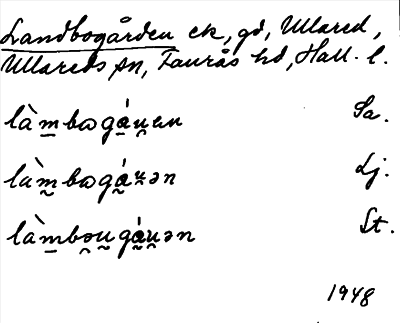 Landbogården ek, gd, Ullared,
Ullareds sn, Faurås hd, Hall. l.
làm̲bωgá̲u̯en Sa.
làm̰bωgá̰ʐən Lj.
làm̲bə̯ṵgá̰ṵən St.
1948